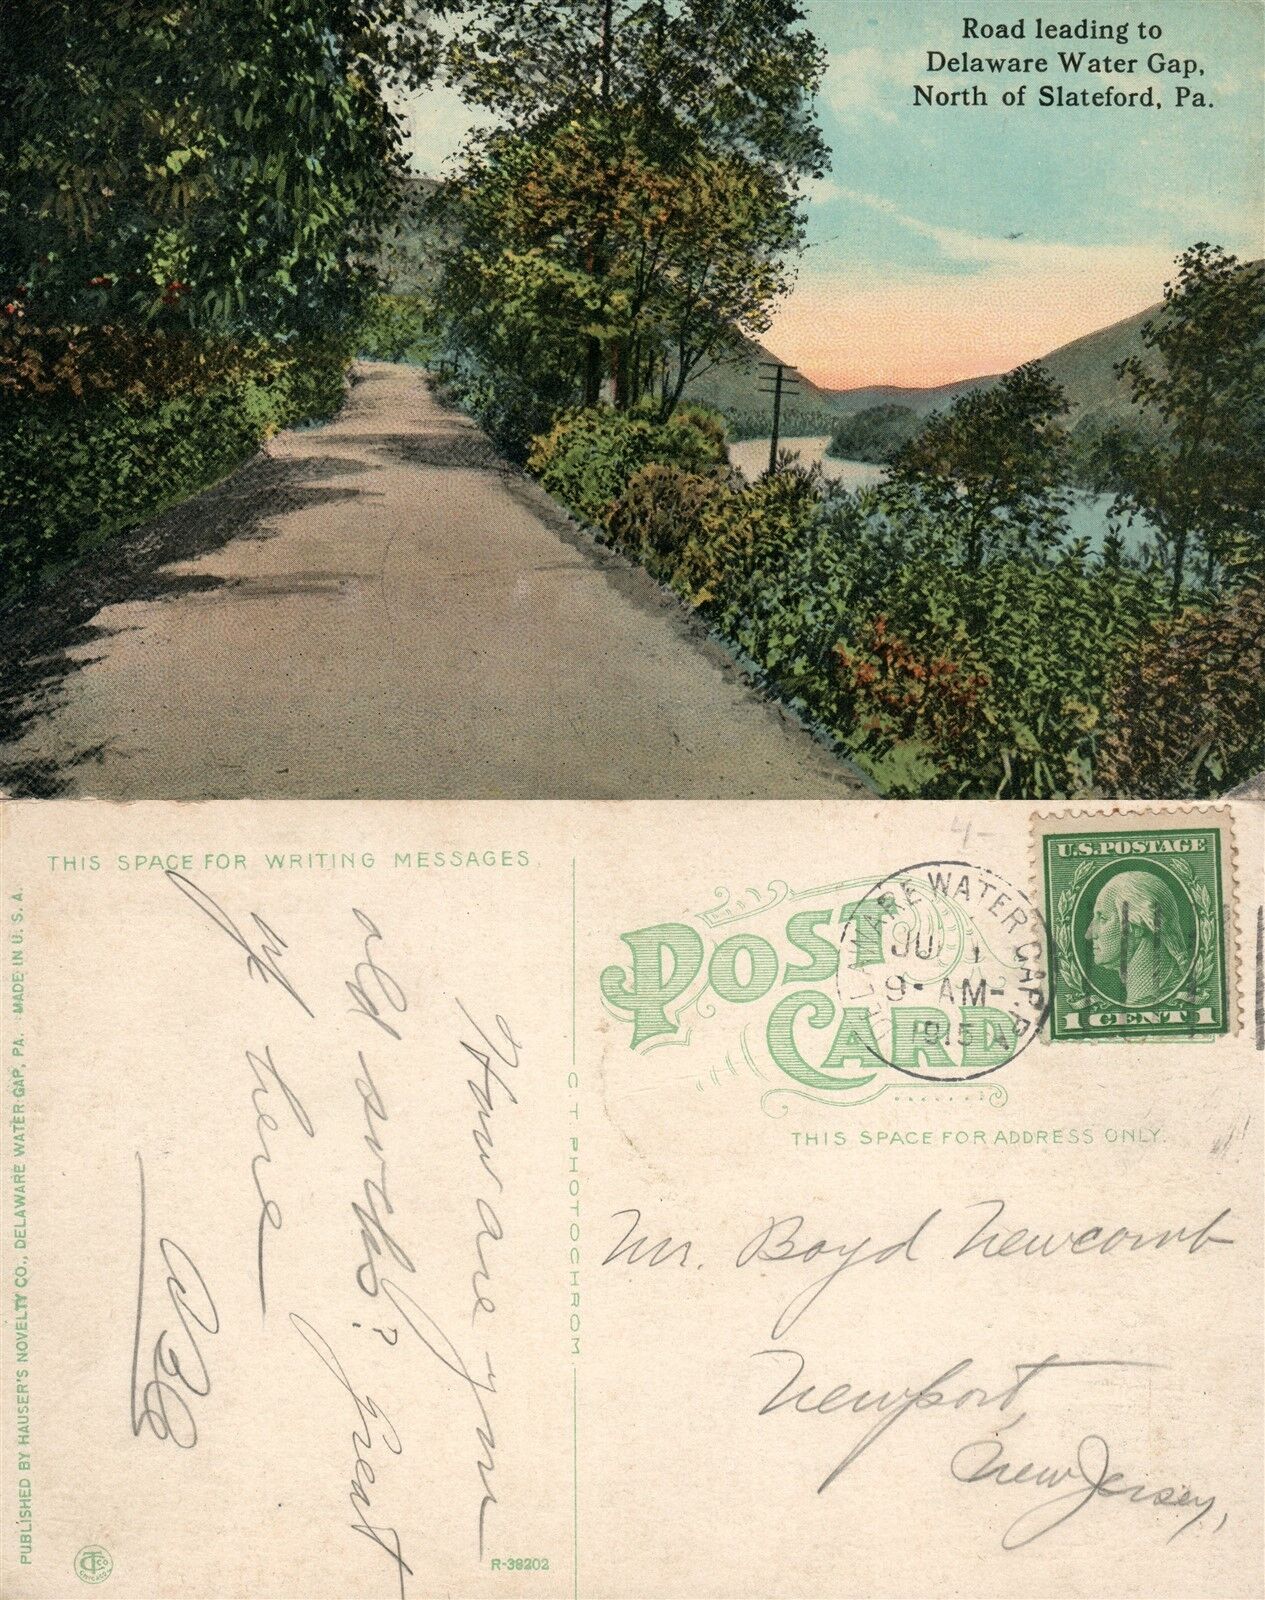 Road leading to
Delaware Water Gap,
North of Slateford, Pa.
THIS SPACE FOR WRITING MESSAGES.
How are you
old socks? Great
up here
PUBLISHED BY HAUSER'S NOVELTY CO., DELAWARE WATER GAP, PA. MADE IN U. S. A.
C. T. PHOTOCHROM.
R-38202
CHICAGO
POST
CARD
THIS SPACE FOR ADDRESS ONLY.
4-
DELAWARE WATER GAP, PA
JUL 1
9-AM-
1915
U.S. POSTAGE
1 CENT 1
Mr. Boyd Newcomb
Newport,
New Jersey,